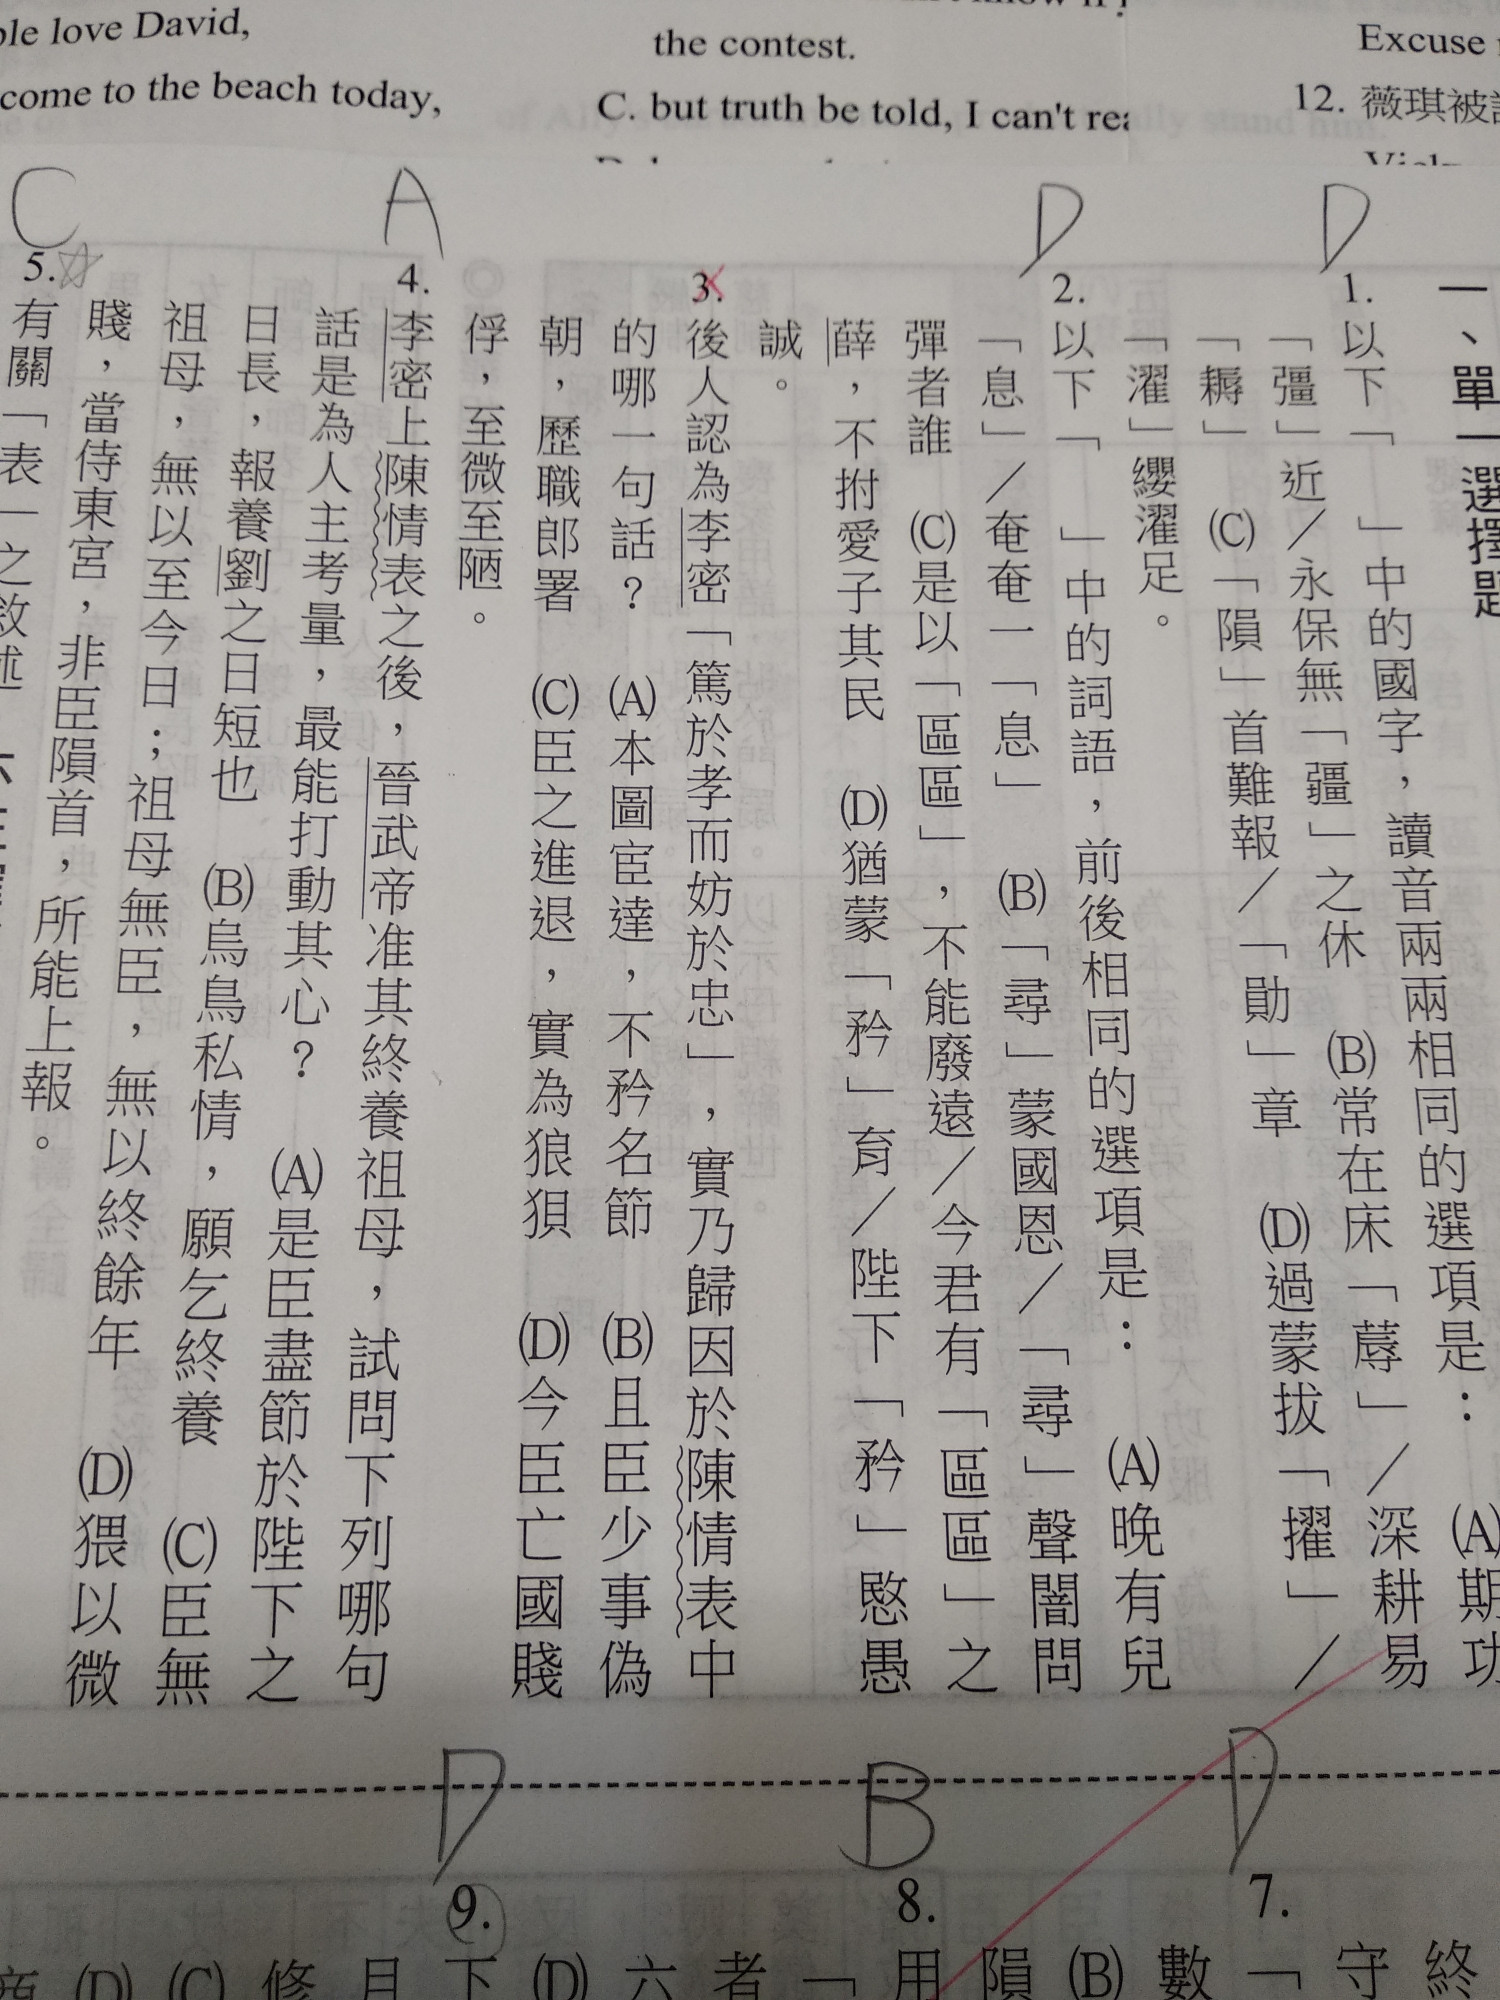 ple love David,
come to the beach today,
the contest.
C. but truth be told, I can't
Excuse
12. 薇琪被
C
A
D
D
一、單一選擇題
1. 以下「 」中的國字，讀音兩兩相同的選項是： (A)期功
「彊」近／永保無「疆」之休 (B)常在床「蓐」／深耕易
「耨」 (C)「隕」首難報／「勛」章 (D)過蒙拔「擢」／
「濯」纓濯足。
2. 以下「 」中的詞語，前後相同的選項是： (A)晚有兒
「息」／奄奄一「息」 (B)「尋」蒙國恩／「尋」聲闇問
彈者誰 (C)是以「區區」，不能廢遠／今君有「區區」之
薛，不拊愛子其民 (D)猶蒙「矜」育／陛下「矜」愍愚
誠。
3. 後人認為李密「篤於孝而妨於忠」，實乃歸因於陳情表中
的哪一句話？ (A)本圖宦達，不矜名節 (B)且臣少事偽
朝，歷職郎署 (C)臣之進退，實為狼狽 (D)今臣亡國賤
俘，至微至陋。
4. 李密上陳情表之後，晉武帝准其終養祖母，試問下列哪句
話是為人主考量，最能打動其心？ (A)是臣盡節於陛下之
日長，報養劉之日短也 (B)烏鳥私情，願乞終養 (C)臣無
祖母，無以至今日；祖母無臣，無以終餘年 (D)猥以微
賤，當侍東宮，非臣隕首，所能上報。
5. 有關「表」之敘述
D
B
D
7.
8.
9.
終
守
「
數
(B)
隕
用
「
者
六
(D)
下
月
修
(C)
(D)